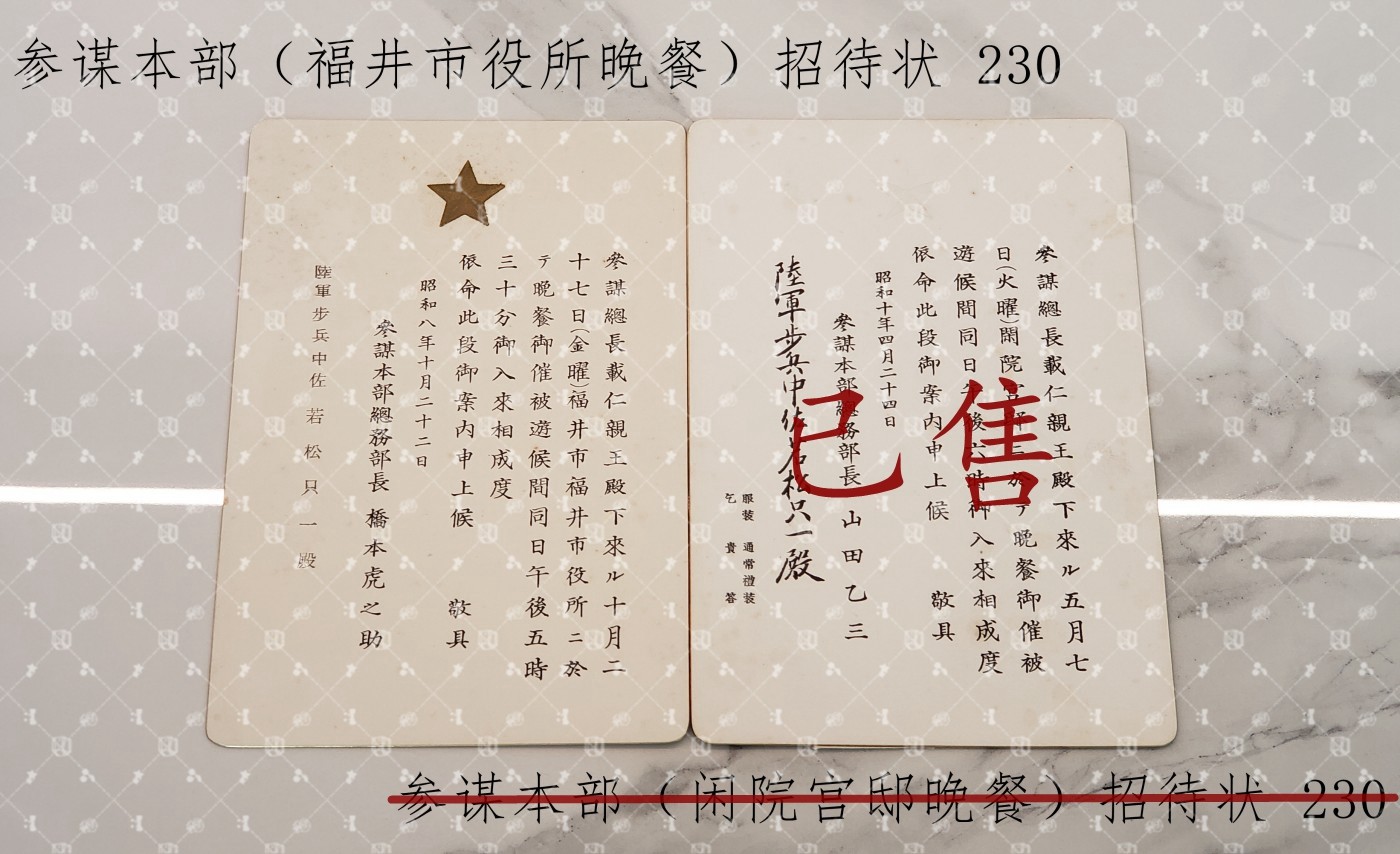 参谋本部（福井市役所晚餐）招待状 230
參謀總長載仁親王殿下來ル十月二
十七日(金曜)福井市福井市役所ニ於
テ晩餐御催被遊候間同日午後五時
三十分御入來相成度
依命此段御案內申上候 敬具
昭和八年十月二十二日
參謀本部總務部長 橋本虎之助
陸軍步兵中佐 若松只一殿
參謀總長載仁親王殿下來ル五月七
日(火曜)閑院宮邸ニ於テ晩餐御催被
遊候間同日午後六時御入來相成度
依命此段御案內申上候 敬具
昭和十年四月二十四日
參謀本部總務部長 山田乙三
陸軍步兵中佐若松只一殿
服装 通常禮装
乞 貴答
已售
参谋本部（闲院宫邸晚餐）招待状 230